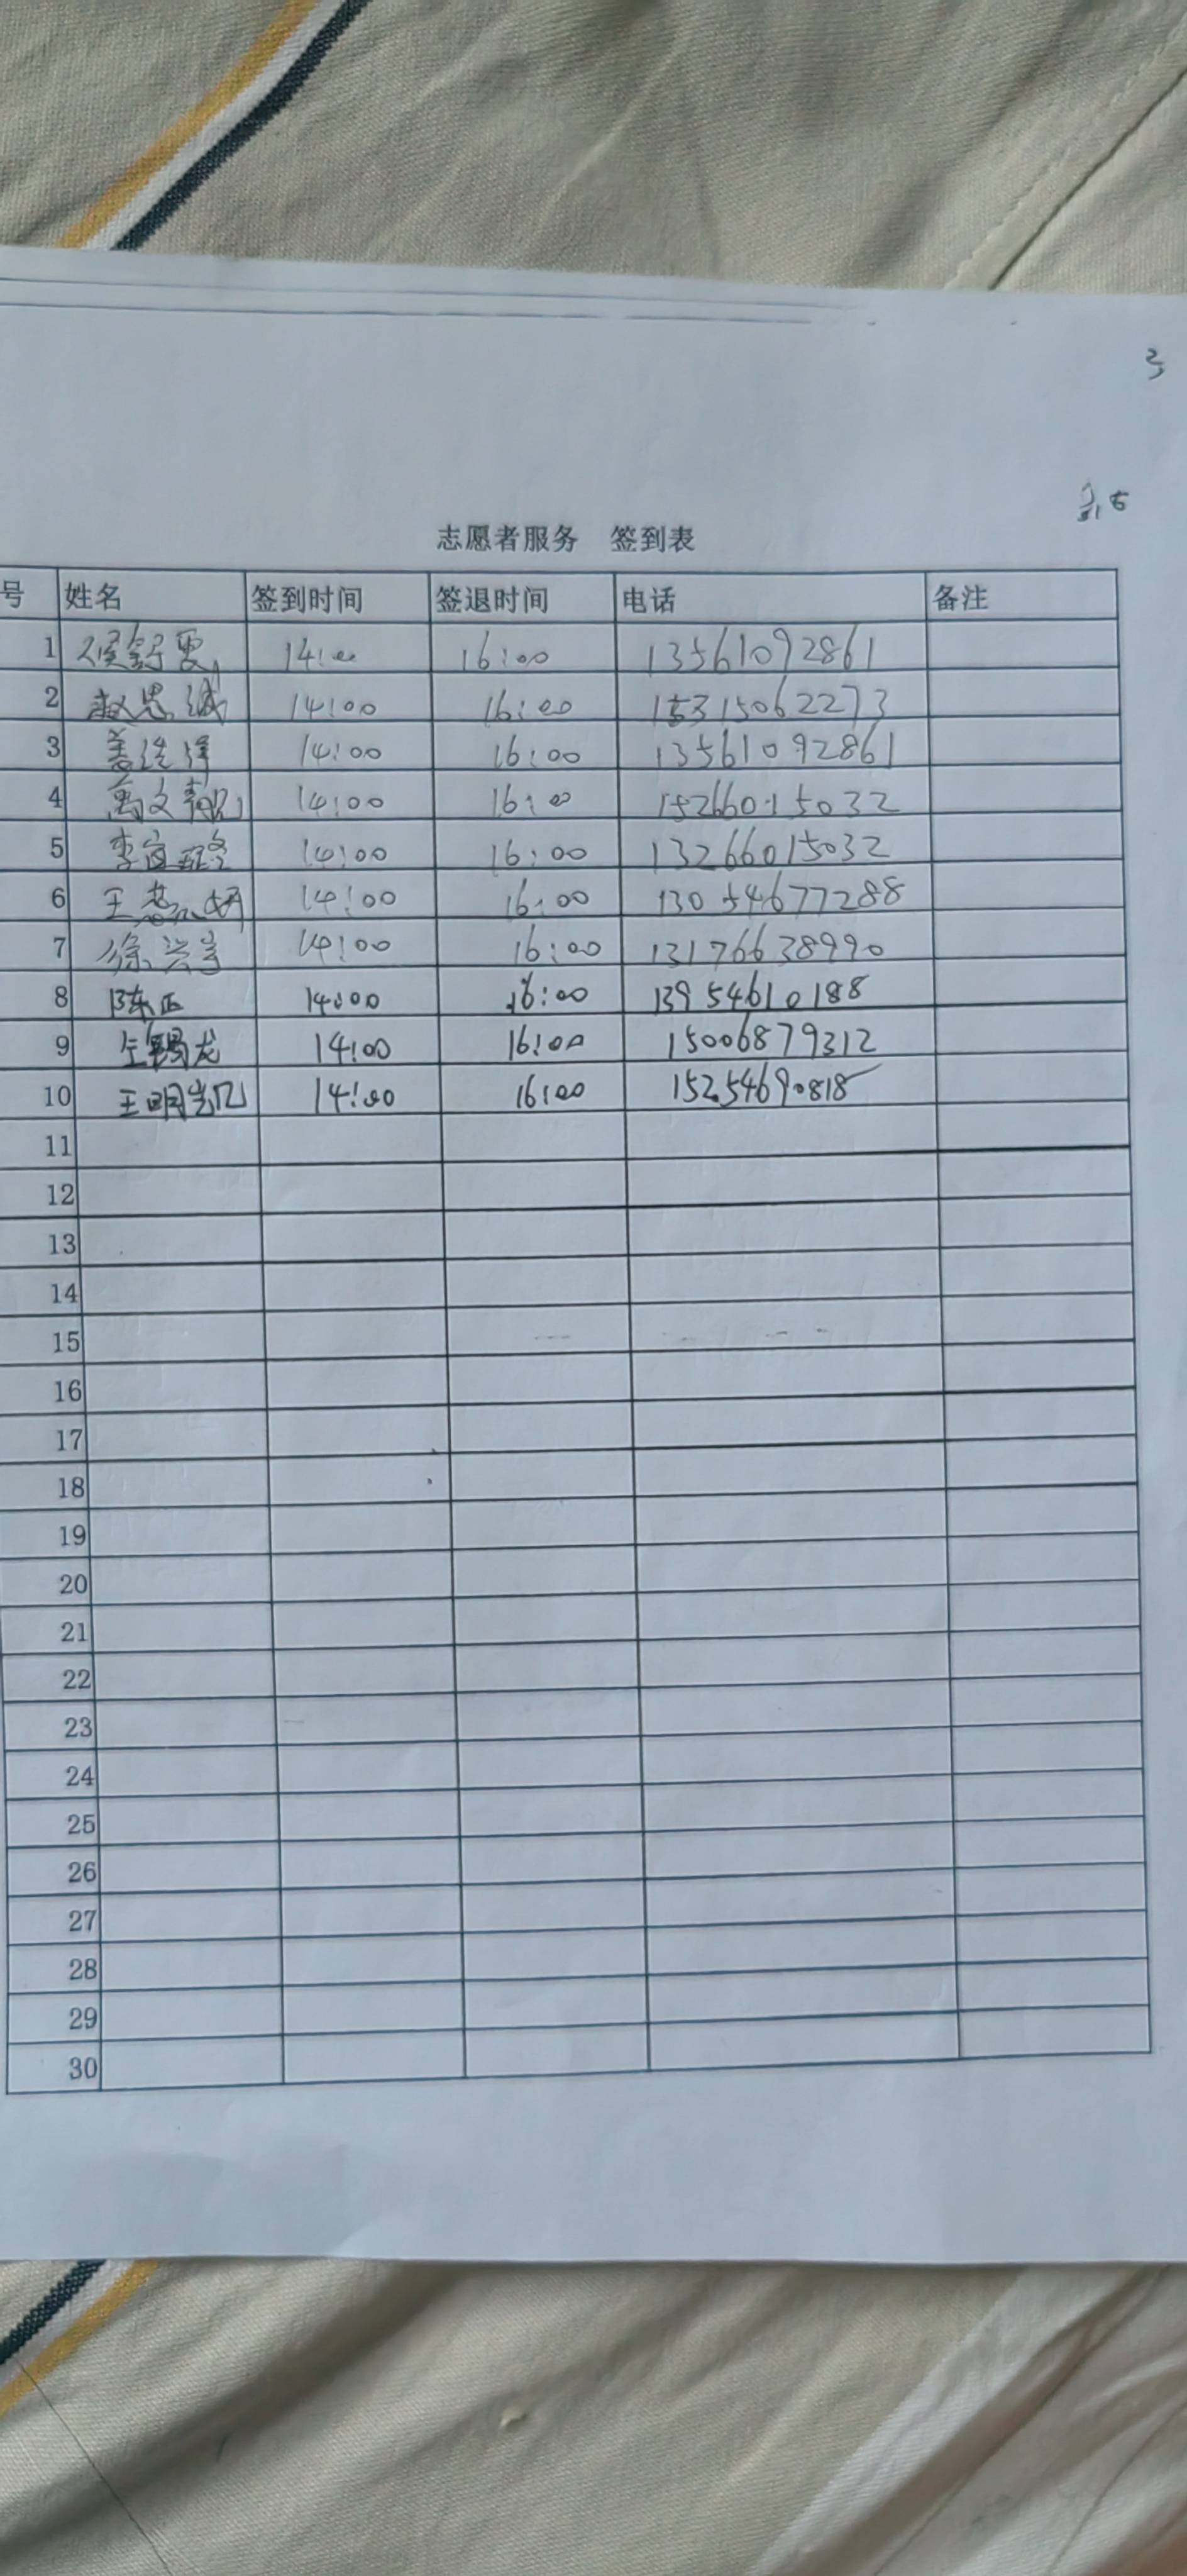 3
志愿者服务 签到表
号 姓名 签到时间 签退时间 电话 备注
1 侯舒雯 14:00 16:00 13561092861
2 赵思诚 14:00 16:00 15315062273
3 14:00 16:00 13561092861
4 14:00 16:00 15266015032
5 李宜 14:00 16:00 13266015032
6 王 14:00 16:00 13054677288
7 徐 14:00 16:00 13176638990
8 陈正 14:00 16:00 13954610188
9 14:00 16:00 15006879312
10 王明 14:00 16:00 15254690818
11
12
13
14
15
16
17
18
19
20
21
22
23
24
25
26
27
28
29
30